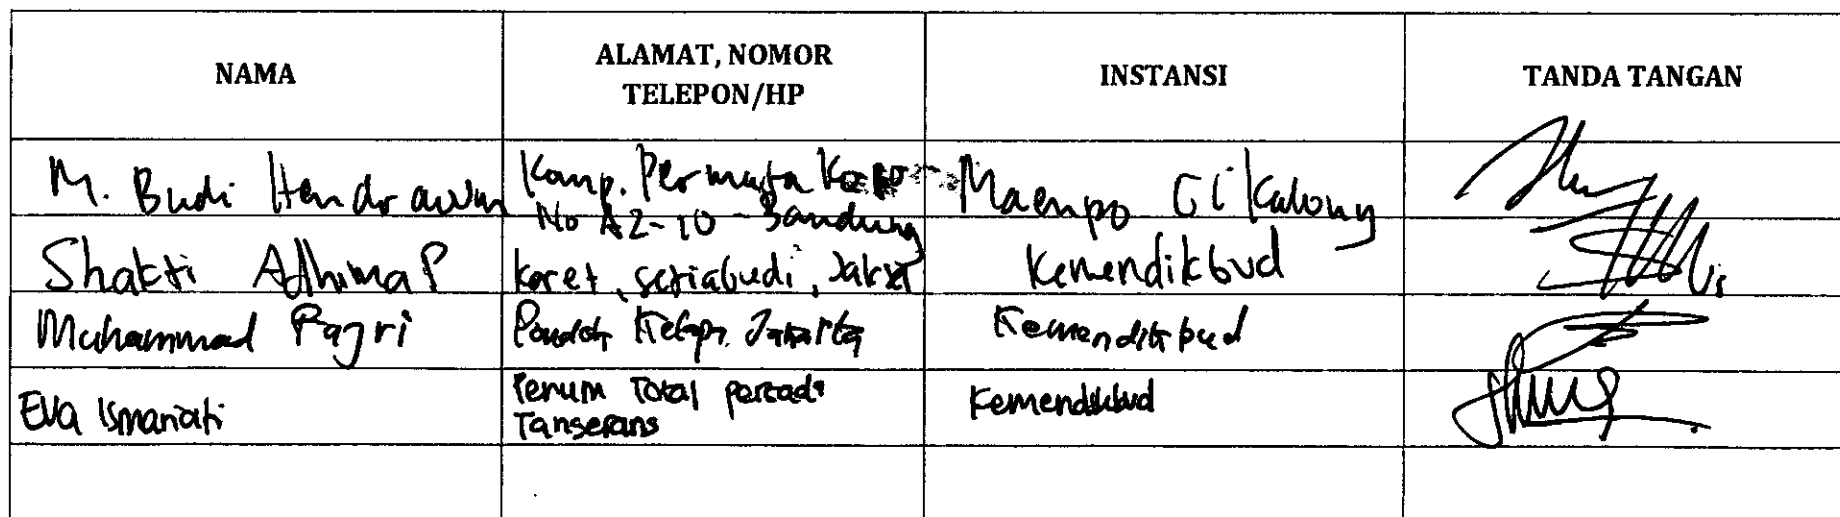 NAMA
ALAMAT, NOMOR
TELEPON/HP
INSTANSI
TANDA TANGAN
M. Budi Hendrawan
Komp. Permata Kopo
No A2-10 - Bandung
Maenpo Cikalong
Shakti Adhima P
Karet, setiabudi, Jaksel
Kemendikbud
Muhammad Pajri
Pondok Kelapa Jakarta
Kemendikbud
Eva Ismariati
Perum Total persada
Tangerang
Kemendikbud